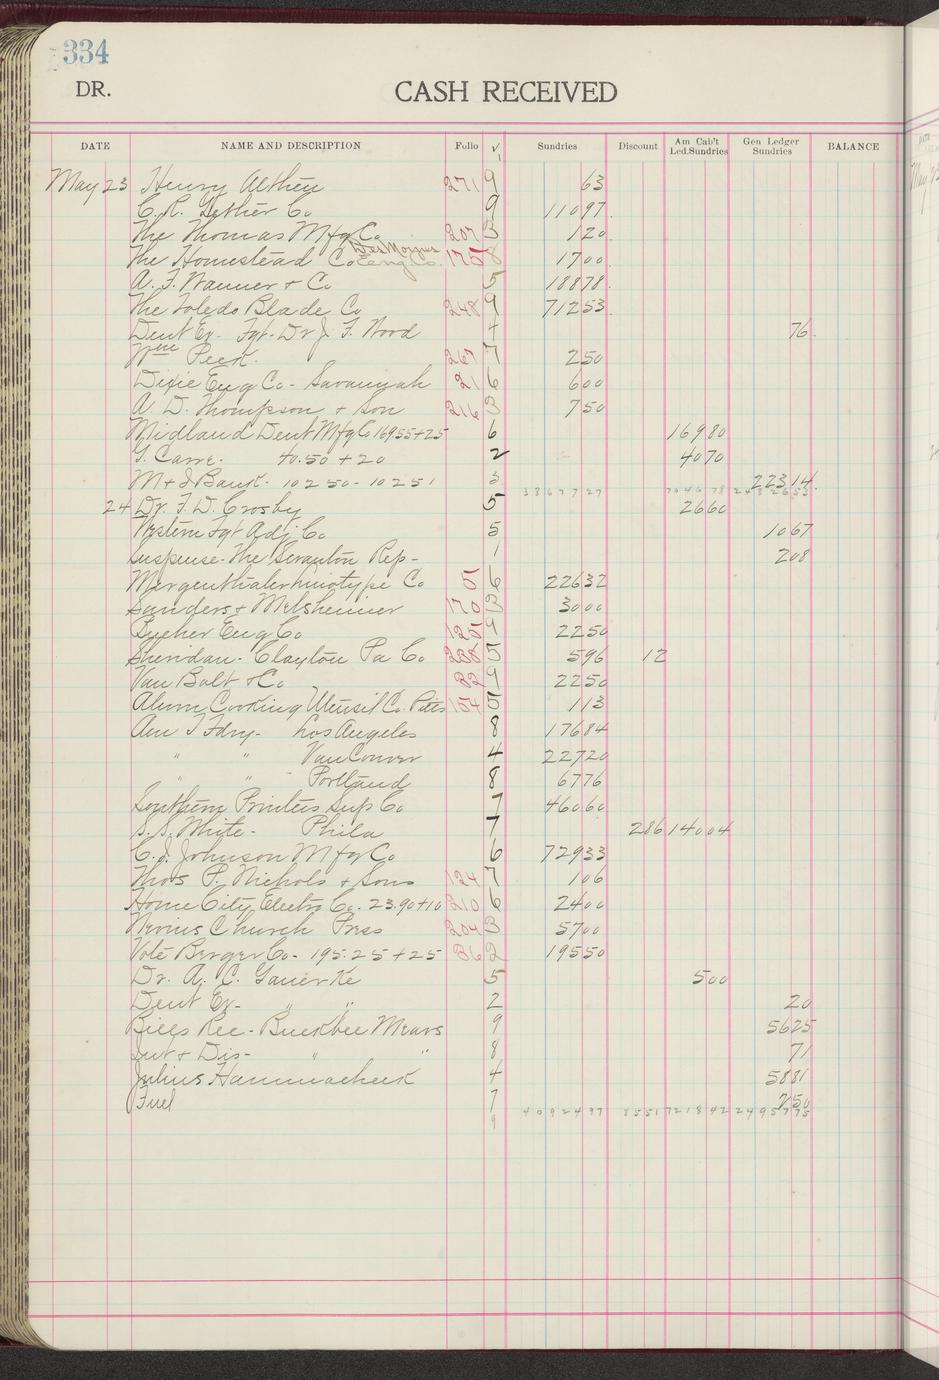 334
DR. CASH RECEIVED
DATE NAME AND DESCRIPTION Folio √ Sundries Discount Am Cab't Led.Sundries Gen Ledger Sundries BALANCE
May 23 Henry 271 9 63
C. R. Gether Co 9 11097
The Thomas Mfg Co 207 3 120
The Homestead Co Des Moines Eng Co. 175 8 1700
A. F. Wanner & Co 5 18878
The Toledo Blade Co 248 9 71253
Dent Ex. Fgt. Dr J. F. Wood 4 76
Wm Peek. 267 7 250
Dixie Eng Co - Savannah 21 6 600
A. D. Thompson & Son 216 3 750
Midland Dent Mfg Co 169.55 + 25 6 16980
G. Carre. 40.50 + 20 2 4070
M & I Bank - 10250 - 10251 3 22314
3867727 704678 2482653
24 Dr. F. D. Crosby 5 2660
Western Fgt Adj Co 5 1067
Suspense - The Scranton Rep - 1 208
Mergenthaler Linotype Co 5 6 22632
Sanders & Melsheimer 170 3 3000
Bucher Eng Co 125 9 2250
Sheridan - Clayton Pa Co 288 5 596 12
Van Bolt & Co 82 9 2250
Alum Cooking Utensil Co. Pitts 154 5 113
Am T Fdry - Los Angeles 8 17684
" " VanCouver 4 22720
" " Portland 8 6776
Southern Printers Sup Co 7 46060
S. S. White - Phila 7 286 14004
C. J. Johnson Mfg Co 6 72933
Thos P. Nichols & Sons 124 7 106
Home City Electro Co. 23.90 + 10 210 6 2400
Nevius Church Press 204 3 5700
Vote Berger Co - 195.25 + 25 36 2 19550
Dr. A. C. 5 500
Dent Ex - " " 2 20
Bills Rec - Buckbee Mears 9 5625
Int & Dis - " " 8 71
Julius 4 5881
Fuel 7 750
9 4092497 8551 721842 2495775